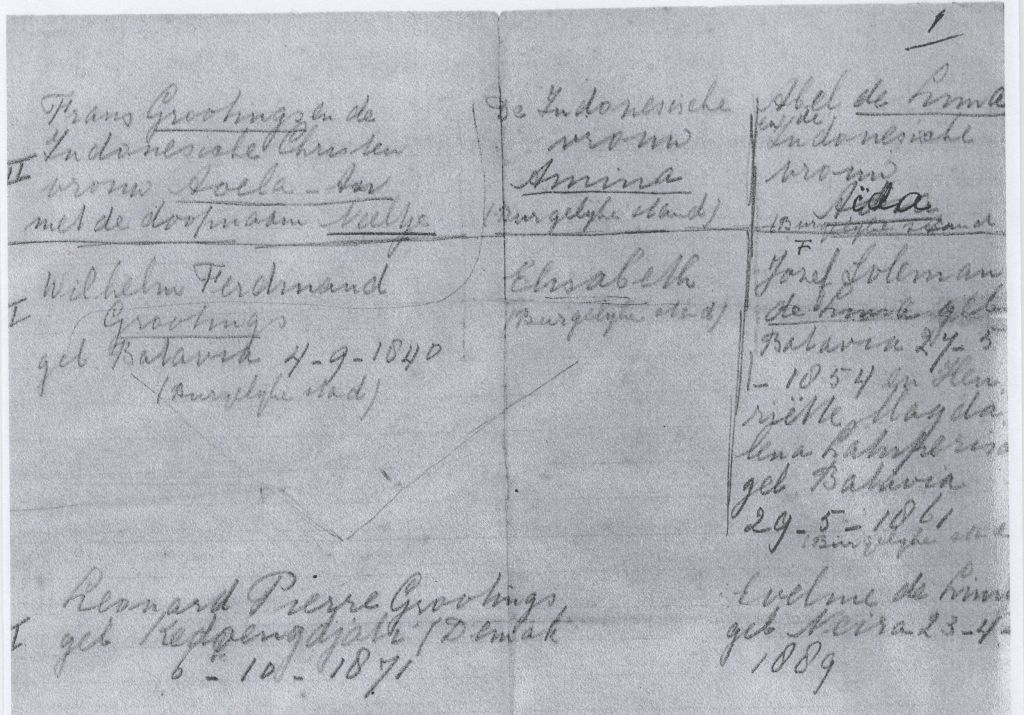 1
Frans Grootings en de
Indonesische Christen
II
vrouw Aoela-
met de doopnaam Neeltje
De Indonesische
vrouw
Amina
(Burgelyke stand)
Abel de Lima
en de
Indonesische
vrouw
Aïda
(Burgelyke stand
Wilhelm Ferdinand
I
Grootings
geb Batavia 4-9-1840
(Burgelyke stand)
Elisabeth
(Burgelyke stand)
Jozef Soleman
de Lima geb
Batavia 27-5
- 1854 en Hen
riëtte Magda
lena
geb Batavia
29-5-1861
(Burgelyke stand
Leonard Pierre Grootings
I
geb Kedoengdjati / Demak
6-10-1871
Eveline de Lima
geb Neira 23-4-
1889